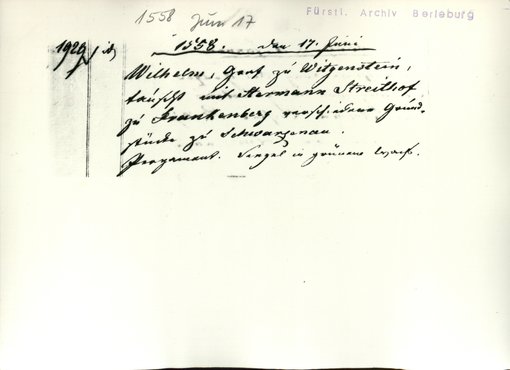 1558 Juni 17
Fürstl. Archiv Berleburg
1926
1558. den 17. Juni
Wilhelm, Graf zu Witgenstein,
tauscht mit Hermann Streithof
zu Frankenberg verschiedene Grund-
stücke zu Schwarzenau.
Pergament. Siegel in grünem Wachs.